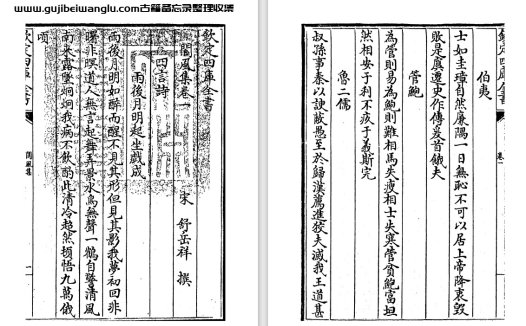 www.gujibeiwanglu.com古籍备忘录整理收集
欽定四庫全書
閬風集卷一
宋 舒岳祥 撰
四言詩
雨後月明起坐戲成
雨後月明如醉而醒不見其形但見其影我夢初回非
暝非瞑道人無言起舞弄影水鳥無聲一鶴自警清風
南來露墜炯炯我病不飲酌此清冷超然頓悟九萬俄
頃
欽定四庫全書
閬風集
一
欽定四庫全書
卷一
伯夷
士如圭璋自然廉隅一日無恥不可以居上帝降衷毀
敗是虞遷史作傳爰首餓夫
管鮑
為管則易為鮑則難相馬失瘦相士失寒管貧鮑富坦
然相安于利不疚于義斯完
魯二儒
叔孫事秦以諛馭愚至於歸漢薦進狡夫滅我王道甚